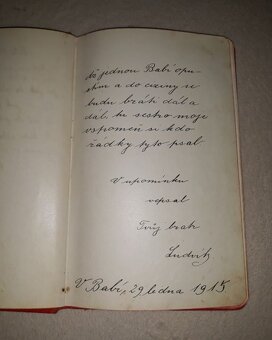 Až jednou Babí opu-
stím a do ciziny se
budu bráti dál a
dál, tu sestro moje
vzpomeň si kdo
řádky tyto psal.
V upomínku
vepsal
Tvůj bratr
Ludvík
V Babí, 29 ledna 1915